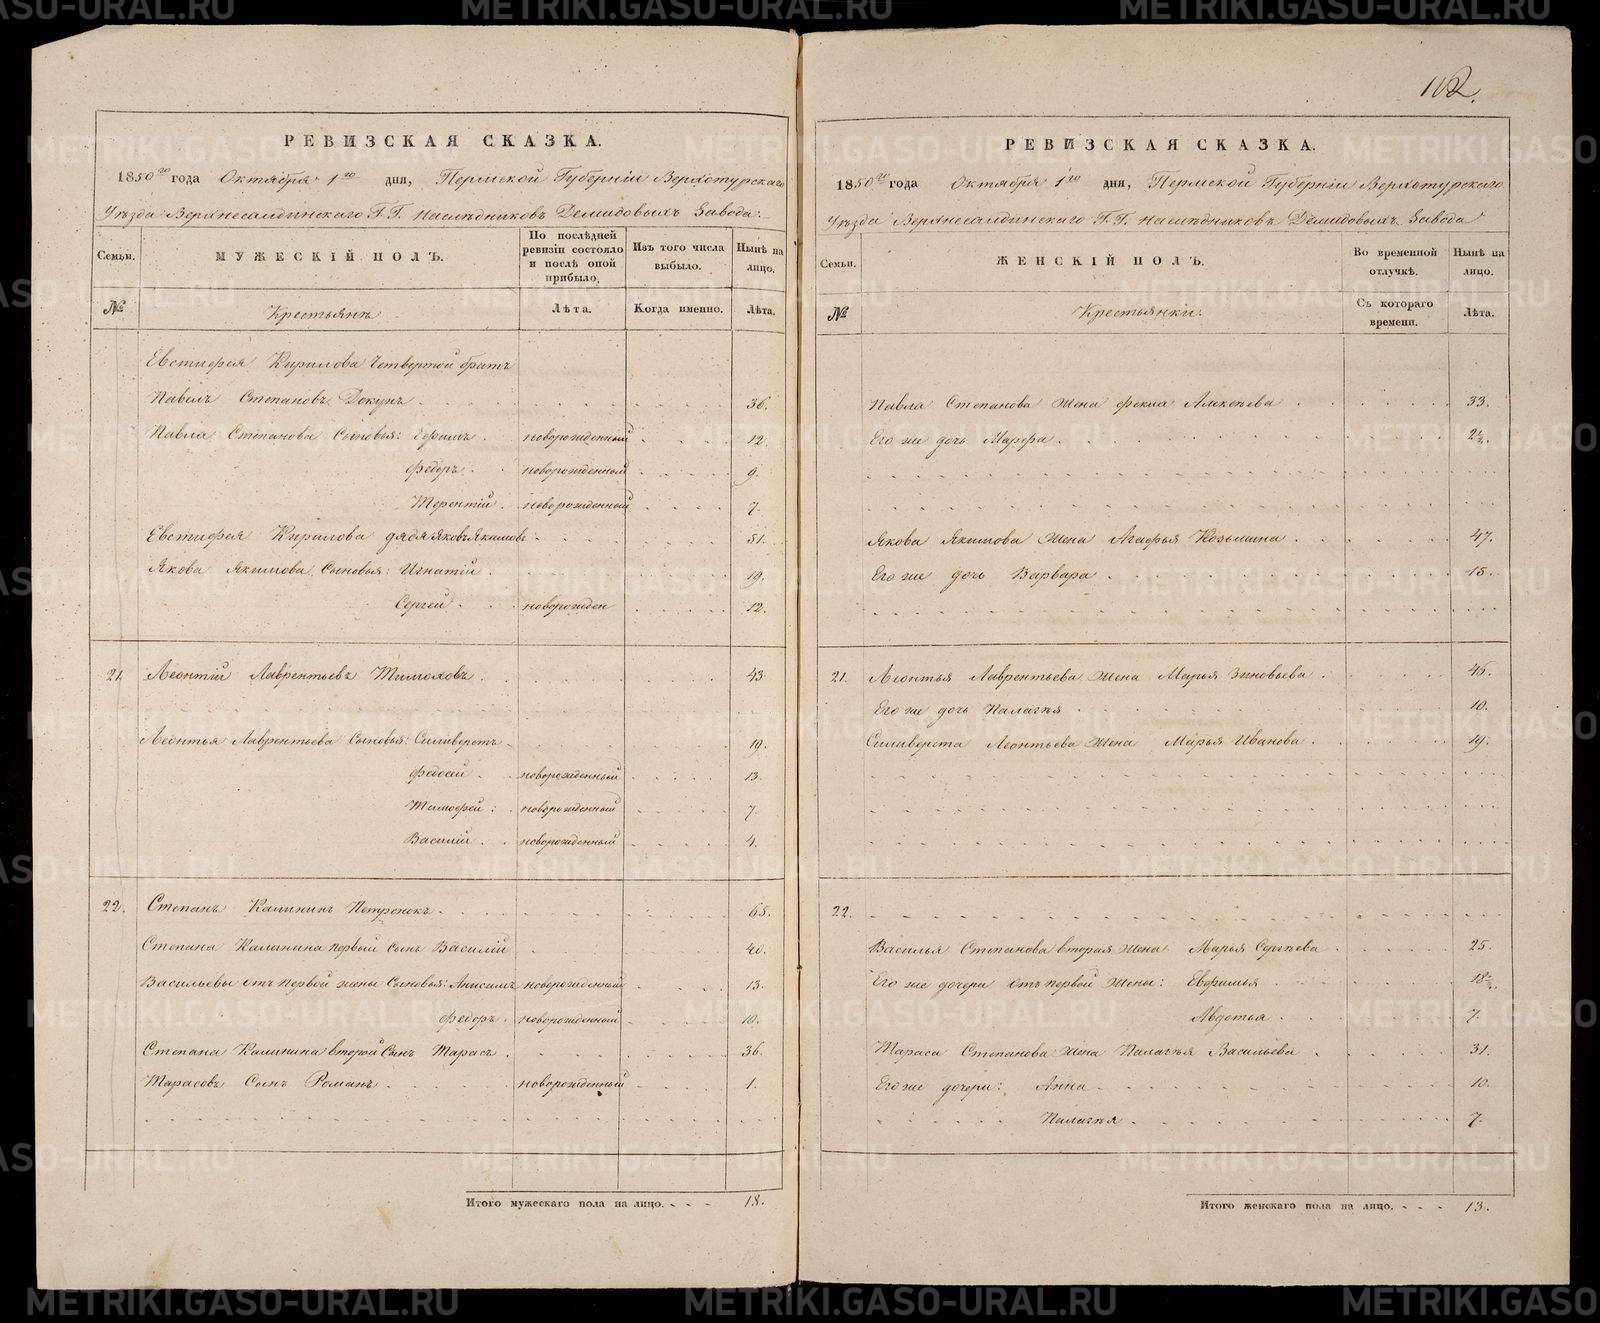 112.
РЕВИЗСКАЯ СКАЗКА.
1850го года Октября 1го дня, Пермской Губерніи Верхотурскаго
Уѣзда Верхнесалдинскаго Г.Г. Наслѣдниковъ Демидовыхъ Завода.
Семьи.
МУЖЕСКІЙ ПОЛЪ.
По послѣдней ревизіи состояло и послѣ оной прибыло.
Изъ того числа выбыло.
Нынѣ на лицо.
№
Крестьянъ
Лѣта.
Когда именно.
Лѣта.
Евстифея Кирилова Четвертой братъ
Павелъ Степановъ Докунъ 36.
Павла Степанова Сыновья: Ефимъ новорожденный 12.
Федоръ новорожденный 9.
Терентій новорожденный 7.
Евстифея Кирилова дядя Яковъ Якимовъ 51.
Якова Якимова Сыновья: Игнатій 19.
Сергей новорожден 12.
21. Леонтій Лаврентьевъ Тимоховъ 43.
Леонтья Лаврентьева Сыновья: Силиверстъ 19.
Федосей новорожденный 13.
Тимофей: новорожденный 7.
Василій новорожденный 4.
22. Степанъ Калининъ Петренокъ 65.
Степана Калинина первый сынъ Василій 40.
Васильевы отъ первой жены Сыновья: Анисимъ новорожденный 13.
Федоръ новорожденный 10.
Степана Калинина второй Сынъ Тарасъ 36.
Тарасовъ Сынъ Романъ новорожденный 1.
Итого мужескаго пола на лицо. 18.
РЕВИЗСКАЯ СКАЗКА.
1850го года Октября 1го дня, Пермской Губерніи Верхотурскаго
Уѣзда Верхнесалдинскаго Г.Г. Наслѣдниковъ Демидовыхъ Завода
Семьи.
ЖЕНСКІЙ ПОЛЪ.
Во временной отлучкѣ.
Нынѣ на лицо.
№
Крестьянки.
Съ котораго времени.
Лѣта.
Павла Степанова жена Фекла Алексѣева 33.
Его же дочь Марфа 2½.
Якова Якимова жена Агафья Козьмина 47.
Его же дочь Варвара 15.
21. Леонтья Лаврентьева жена Марья Зиновьева 46.
Его же дочь Палагѣя 10.
Силиверста Леонтьева жена Марья Иванова 19.
22.
Василья Степанова вторая жена Марья Сергѣева 25.
Его же дочери отъ первой жены: Евфимья 18½.
Авдотья 7.
Тараса Степанова жена Палагѣя Васильева 31.
Его же дочери: Анна 10.
Палагѣя 7.
Итого женскаго пола на лицо. 13.
METRIKI.GASO-URAL.RU